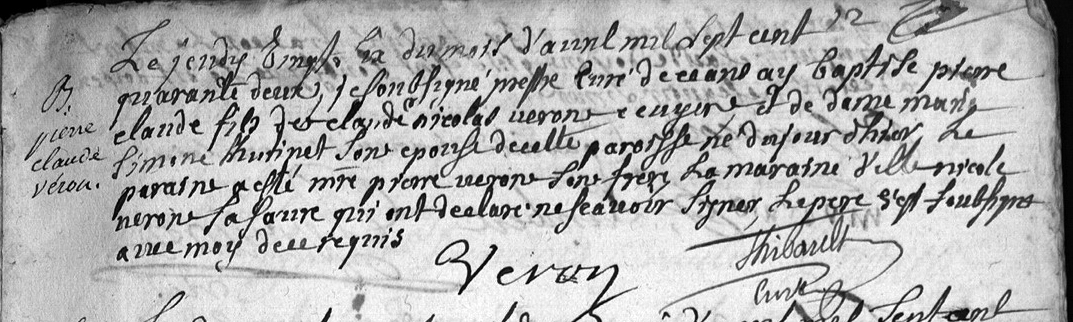 12
Le jeudy vingt six du mois d'avril mil sept cent
quarante deux, je soubsigné prestre curé de ceans ay baptisé pierre
claude fils de claude nicolas verone escuyere et de dame marie
simone hutinet sone epouse de cette paroisse né du jour d'hier Le
paraine a esté mre pierre verone sone frere La maraine dlle nicole
verone sa saure qui ont declare ne scavoir signer Le pere s'est soubsigné
avec moy de ce requis
B.
pierre
claude
véron.
Veron
Thibault
curé
mil sept cent